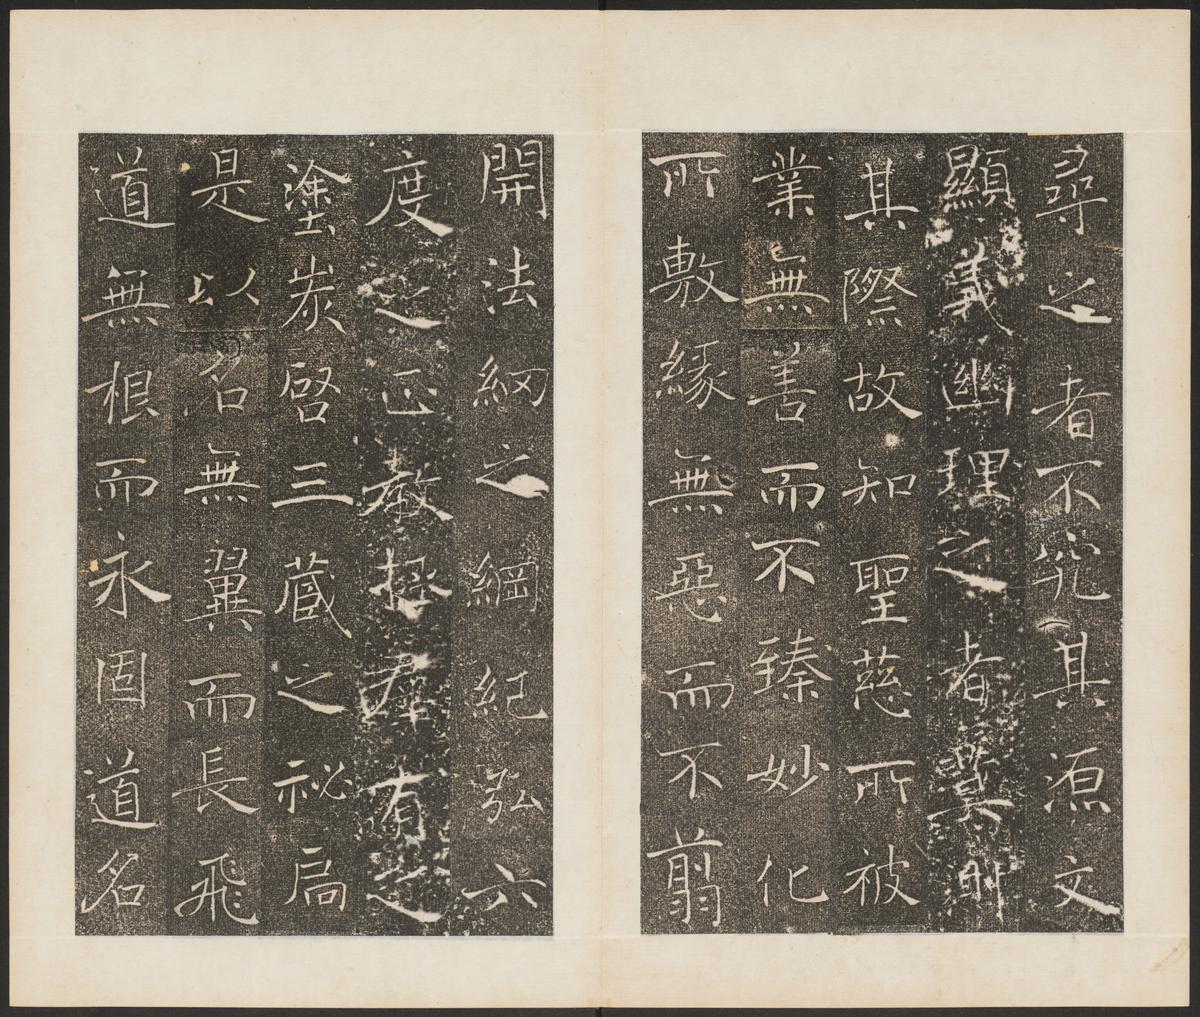 尋之者不究其源文
顯義幽理之者莫測
其際故知聖慈所被
業無善而不臻妙化
所敷緣無惡而不翦
開法網之綱紀弘六
度之正教拯群有之
塗炭啓三藏之祕扃
是以名無翼而長飛
道無根而永固道名